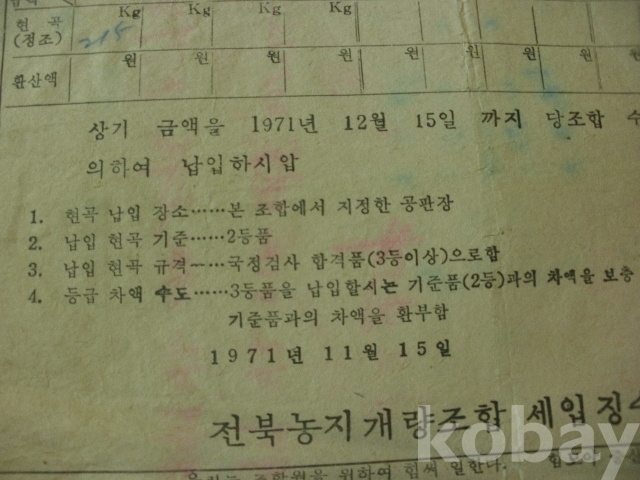 Kg Kg Kg Kg
현곡
(정조) 215
원 원 원 원 원 원 원 원
환산액
상기 금액을 1971년 12월 15일 까지 당조합 수
의하여 납입하시압
1. 현곡 납입 장소……본 조합에서 지정한 공판장
2. 납입 현곡 기준……2등품
3. 납입 현곡 규격……국정검사 합격품(3등이상)으로함
4. 등급 차액 수도……3등품을 납입할시는 기준품(2등)과의 차액을 보충
기준품과의 차액을 환부함
1971년 11월 15일
전북농지개량조합 세입징수
조합원을 위하여 힘써 일한다.
kobay